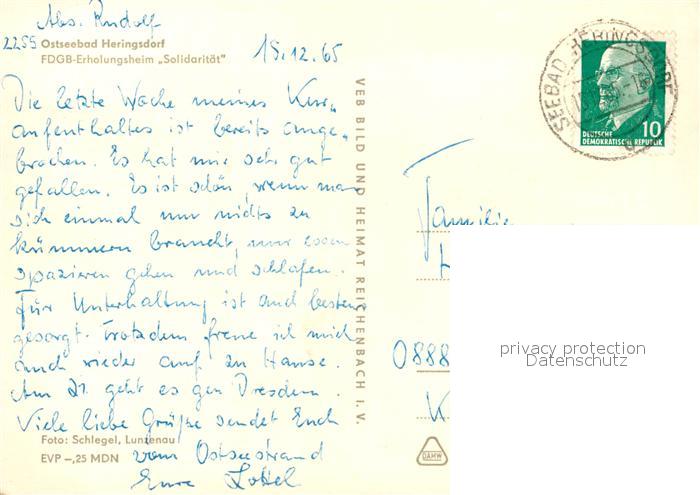 Abs. Rudolf
2255 Ostseebad Heringsdorf
FDGB-Erholungsheim „Solidarität"
15.12.65
Die letzte Woche meines Kur-
aufenthaltes ist bereits ange-
brochen. Es hat mir sehr gut
gefallen. Es ist schön, wenn man
sich einmal um nichts zu
kümmern braucht, nur essen
spazieren gehen und schlafen.
Für Unterhaltung ist auch bestens
gesorgt. Trotzdem freue ich mich
auch wieder auf zu Hause.
Am 21. geht es gen Dresden.
Viele liebe Grüße sendet Euch
vom Ostseestrand
Eure
Foto: Schlegel, Lunzenau
EVP –,25 MDN
VEB BILD UND HEIMAT REICHENBACH I. V.
SEEBAD HERINGSDORF
DEUTSCHE
DEMOKRATISCHE REPUBLIK
10
Familie
H
0888
K
DAMW
privacy protection
Datenschutz